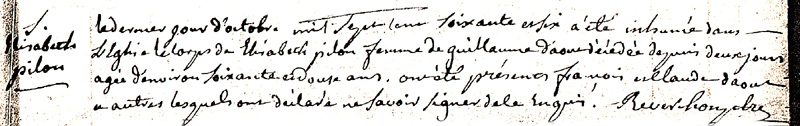 S.
Elisabeth
pilon
le dernier jour d'octobre mil sept cent soixante et six a été inhumée dans
l'Eglise le corps de Elisabeth pilon femme de guillaume daoust décédée depuis deux jours
agée d'environ soixante et douse ans. ont été présents françois et Claude daoust
et autres lesquels ont déclaré ne savoir signer de ce Enquis.